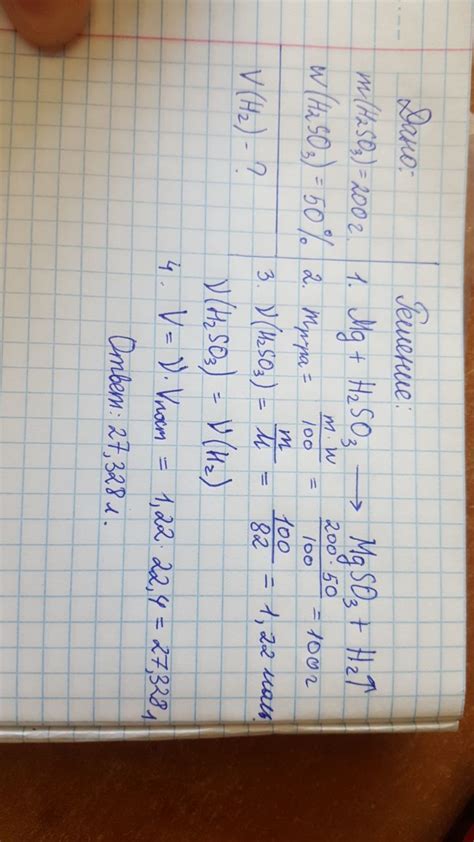 Дано:
m(H₂SO₃)=200г.
W(H₂SO₃)=50%
V(H₂) - ?
Решение:
1. Mg + H₂SO₃ → MgSO₃ + H₂↑
2. mч.в = m·w/100 = 200·50/100 = 100г
3. ν(H₂SO₃) = m/M = 100/82 = 1,22 моль
ν(H₂SO₃) = ν(H₂)
4. V = ν·Vмол = 1,22·22,4 = 27,328 л
Ответ: 27,328 л.